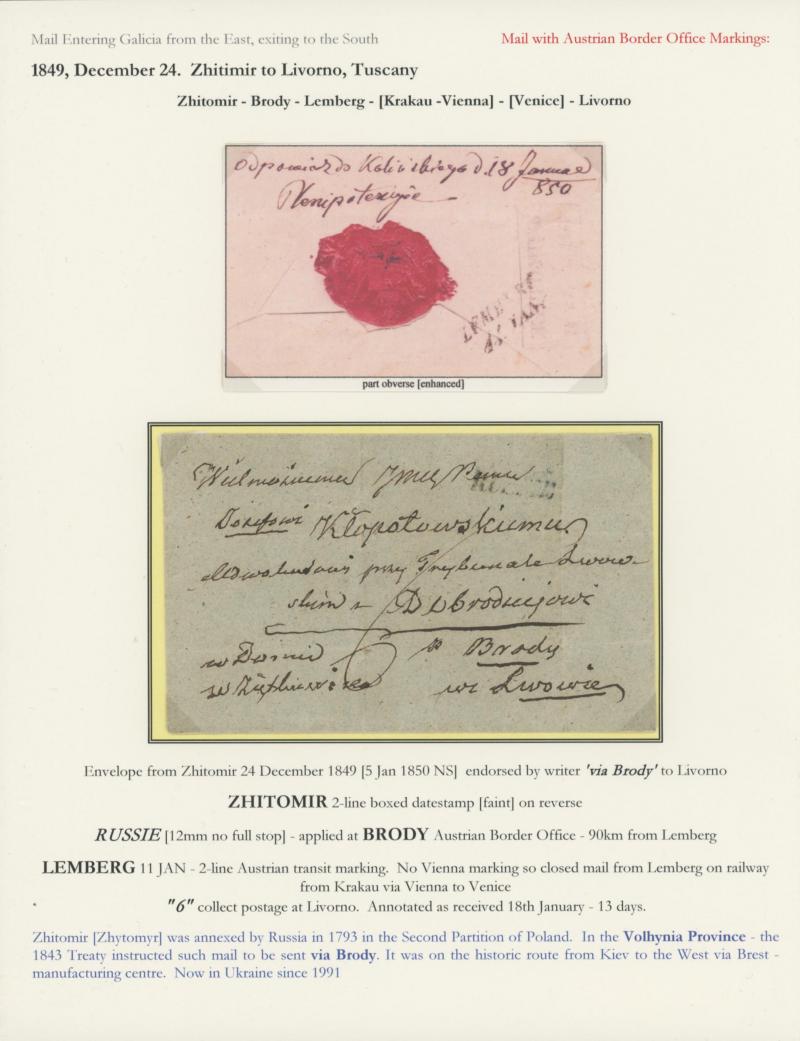 Mail Entering Galicia from the East, exiting to the South
Mail with Austrian Border Office Markings:
1849, December 24. Zhitimir to Livorno, Tuscany
Zhitomir - Brody - Lemberg - [Krakau -Vienna] - [Venice] - Livorno
Odpowiedz do Kalińskiego d. 18 Januar
850
Plenipotencyie
LEMBERG
11 JAN.
part obverse [enhanced]
Wielmożnemu Panu
RUSSIE
Józefowi Kłopotowskiemu
Adwokatowi przy Trybunale Lwow-
skim i Dobrodziejowi
6
w Domu p Brody
we Lwowie
Envelope from Zhitomir 24 December 1849 [5 Jan 1850 NS] endorsed by writer 'via Brody' to Livorno
ZHITOMIR 2-line boxed datestamp [faint] on reverse
RUSSIE [12mm no full stop] - applied at BRODY Austrian Border Office - 90km from Lemberg
LEMBERG 11 JAN - 2-line Austrian transit marking. No Vienna marking so closed mail from Lemberg on railway
from Krakau via Vienna to Venice
"6" collect postage at Livorno. Annotated as received 18th January - 13 days.
Zhitomir [Zhytomyr] was annexed by Russia in 1793 in the Second Partition of Poland. In the Volhynia Province - the
1843 Treaty instructed such mail to be sent via Brody. It was on the historic route from Kiev to the West via Brest -
manufacturing centre. Now in Ukraine since 1991